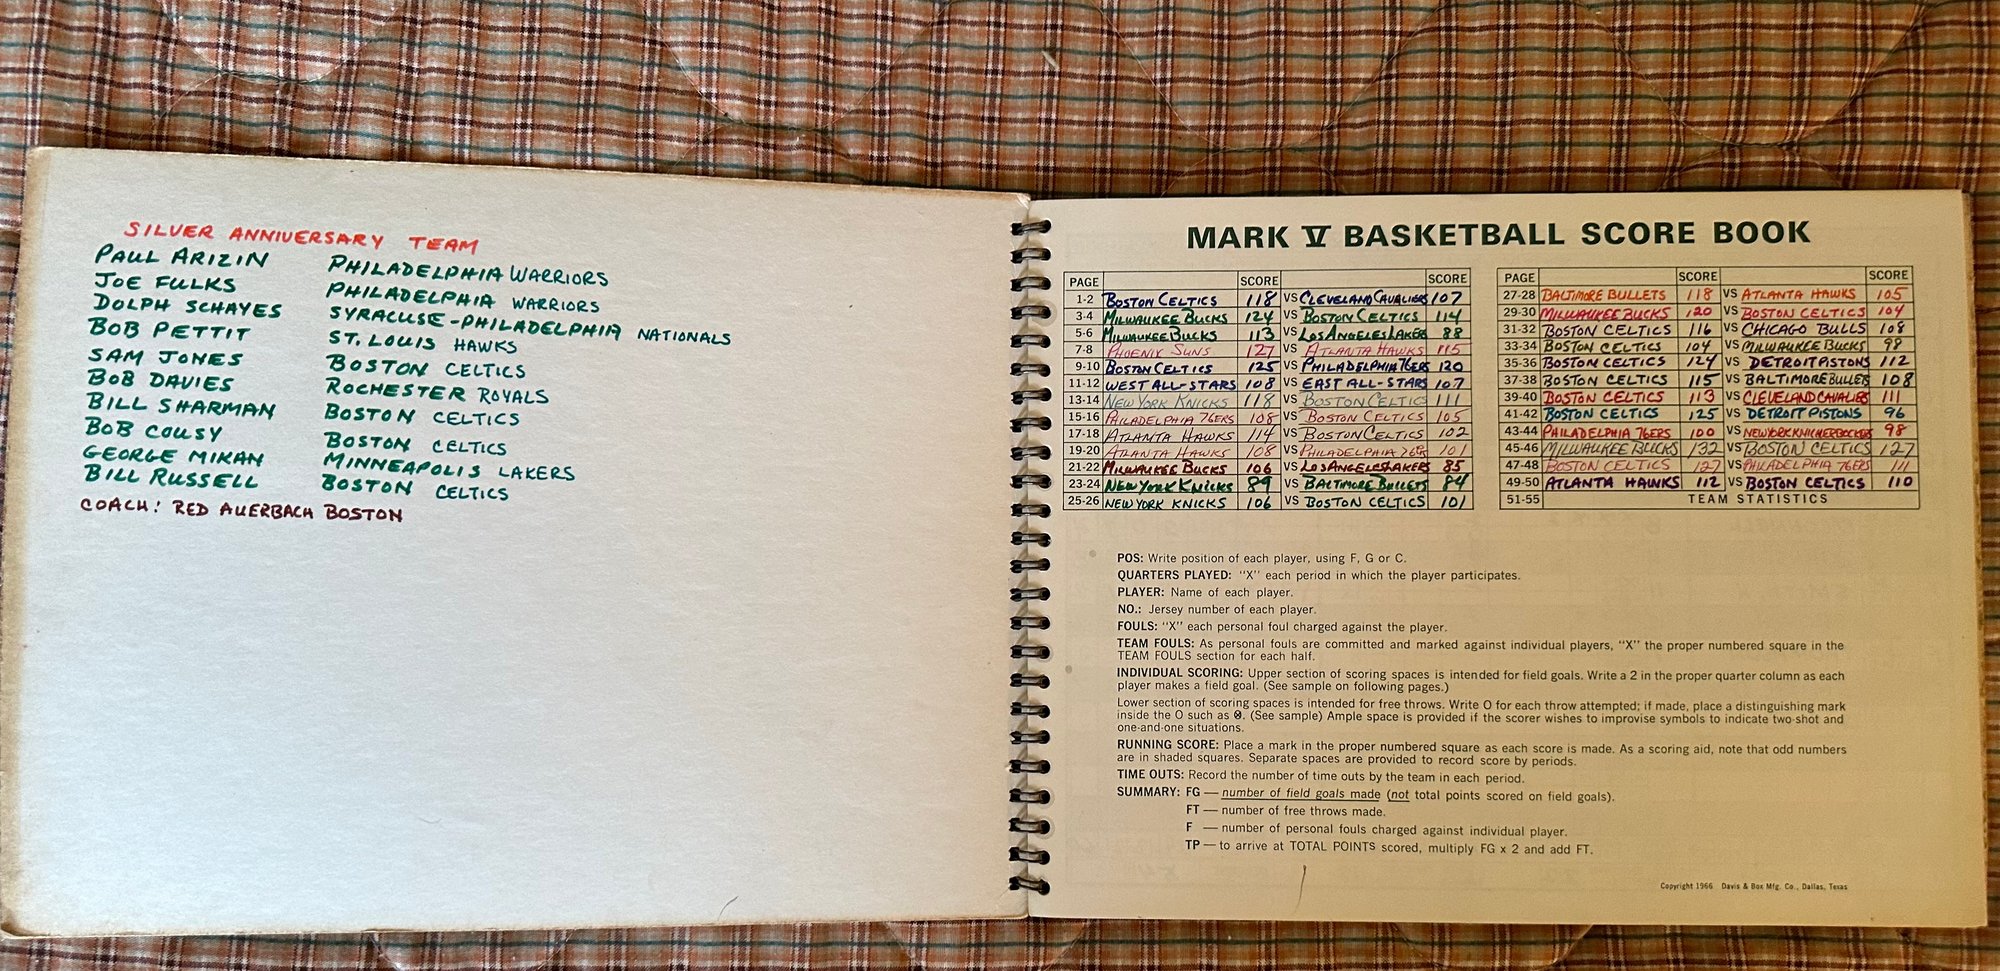 SILVER ANNIVERSARY TEAM
PAUL ARIZIN PHILADELPHIA WARRIORS
JOE FULKS PHILADELPHIA WARRIORS
DOLPH SCHAYES SYRACUSE-PHILADELPHIA NATIONALS
BOB PETTIT ST. LOUIS HAWKS
SAM JONES BOSTON CELTICS
BOB DAVIES ROCHESTER ROYALS
BILL SHARMAN BOSTON CELTICS
BOB COUSY BOSTON CELTICS
GEORGE MIKAN MINNEAPOLIS LAKERS
BILL RUSSELL BOSTON CELTICS
COACH: RED AUERBACH BOSTON
MARK V BASKETBALL SCORE BOOK
PAGE SCORE SCORE
1-2 BOSTON CELTICS 118 VS CLEVELAND CAVALIERS 107
3-4 MILWAUKEE BUCKS 124 VS BOSTON CELTICS 114
5-6 MILWAUKEE BUCKS 113 VS LOS ANGELES LAKERS 88
7-8 PHOENIX SUNS 127 VS ATLANTA HAWKS 115
9-10 BOSTON CELTICS 125 VS PHILADELPHIA 76ERS 120
11-12 WEST ALL-STARS 108 VS EAST ALL-STARS 107
13-14 NEW YORK KNICKS 118 VS BOSTON CELTICS 111
15-16 PHILADELPHIA 76ERS 108 VS BOSTON CELTICS 105
17-18 ATLANTA HAWKS 114 VS BOSTON CELTICS 102
19-20 ATLANTA HAWKS 108 VS PHILADELPHIA 76ERS 101
21-22 MILWAUKEE BUCKS 106 VS LOS ANGELES LAKERS 85
23-24 NEW YORK KNICKS 89 VS BALTIMORE BULLETS 84
25-26 NEW YORK KNICKS 106 VS BOSTON CELTICS 101
PAGE SCORE SCORE
27-28 BALTIMORE BULLETS 118 VS ATLANTA HAWKS 105
29-30 MILWAUKEE BUCKS 120 VS BOSTON CELTICS 104
31-32 BOSTON CELTICS 116 VS CHICAGO BULLS 108
33-34 BOSTON CELTICS 104 VS MILWAUKEE BUCKS 98
35-36 BOSTON CELTICS 124 VS DETROIT PISTONS 112
37-38 BOSTON CELTICS 115 VS BALTIMORE BULLETS 108
39-40 BOSTON CELTICS 113 VS CLEVELAND CAVALIERS 111
41-42 BOSTON CELTICS 125 VS DETROIT PISTONS 96
43-44 PHILADELPHIA 76ERS 100 VS NEW YORK KNICKERBOCKERS 98
45-46 MILWAUKEE BUCKS 132 VS BOSTON CELTICS 127
47-48 BOSTON CELTICS 127 VS PHILADELPHIA 76ERS 111
49-50 ATLANTA HAWKS 112 VS BOSTON CELTICS 110
51-55 TEAM STATISTICS
POS: Write position of each player, using F, G or C.
QUARTERS PLAYED: "X" each period in which the player participates.
PLAYER: Name of each player.
NO.: Jersey number of each player.
FOULS: "X" each personal foul charged against the player.
TEAM FOULS: As personal fouls are committed and marked against individual players, "X" the proper numbered square in the
TEAM FOULS section for each half.
INDIVIDUAL SCORING: Upper section of scoring spaces is intended for field goals. Write a 2 in the proper quarter column as each
player makes a field goal. (See sample on following pages.)
Lower section of scoring spaces is intended for free throws. Write O for each throw attempted; if made, place a distinguishing mark
inside the O such as Ꙩ. (See sample) Ample space is provided if the scorer wishes to improvise symbols to indicate two-shot and
one-and-one situations.
RUNNING SCORE: Place a mark in the proper numbered square as each score is made. As a scoring aid, note that odd numbers
are in shaded squares. Separate spaces are provided to record score by periods.
TIME OUTS: Record the number of time outs by the team in each period.
SUMMARY: FG — number of field goals made (not total points scored on field goals).
FT — number of free throws made.
F — number of personal fouls charged against individual player.
TP — to arrive at TOTAL POINTS scored, multiply FG x 2 and add FT.
Copyright 1966 Davis & Box Mfg. Co., Dallas, Texas